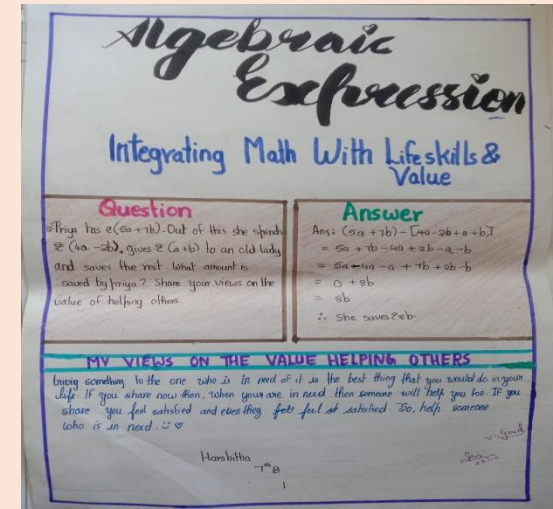 Algebraic
Expression
Integrating Math With Lifeskills &
Value
Question
Priya has ₹(5a+7b). Out of this she spends
₹ (4a-2b), gives ₹ (a+b) to an old lady
and saves the rest. What amount is
saved by priya? Share your views on the
value of helping others
Answer
Ans: (5a+7b)-[4a-2b+a+b]
= 5a+7b-4a+2b-a-b
= 5a-4a-a+7b+2b-b
= 0+8b
= 8b
∴ She saves ₹8b.
MY VIEWS ON THE VALUE HELPING OTHERS
Giving something to the one who is in need of it is the best thing that you would do in your
life. If you share now then, when your are in need then someone will help you too. If you
share you feel satisfied and even they feel satisfied. So, help someone
who is in need.
V. Good
Harshitha
7th B
1